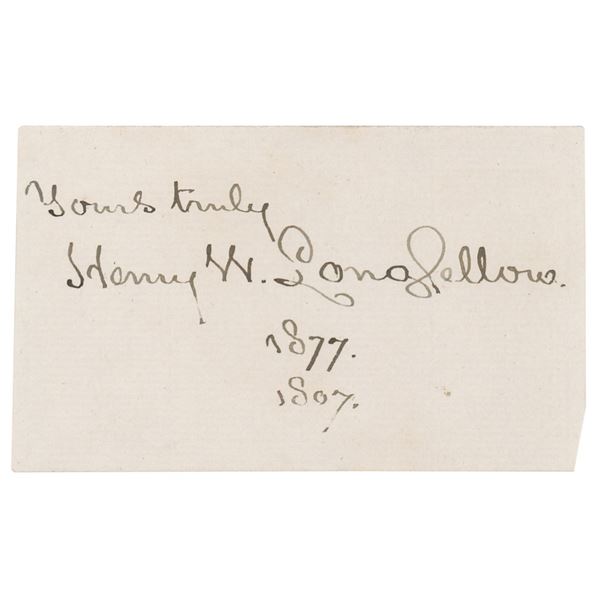 Yours truly
Henry W. Longfellow.
1877.
1807.